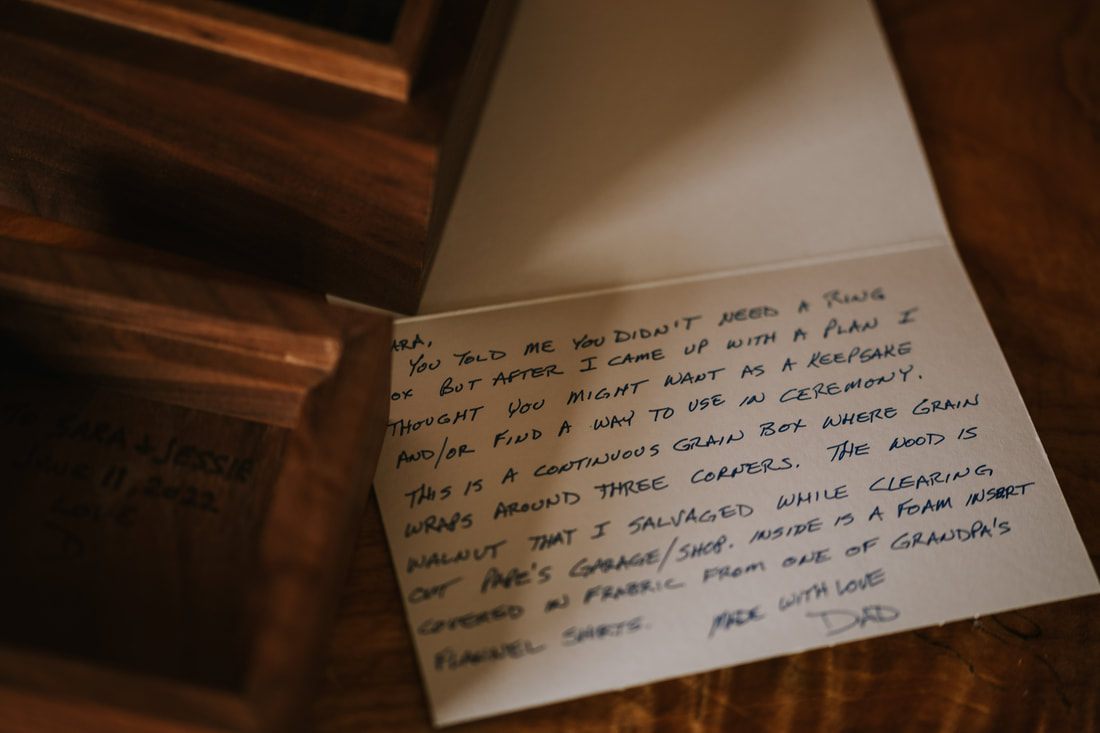 ARA,
YOU TOLD ME YOU DIDN'T NEED A RING
OX BUT AFTER I CAME UP WITH A PLAN I
THOUGHT YOU MIGHT WANT AS A KEEPSAKE
AND/OR FIND A WAY TO USE IN CEREMONY.
THIS IS A CONTINUOUS GRAIN BOX WHERE GRAIN
WRAPS AROUND THREE CORNERS. THE WOOD IS
WALNUT THAT I SALVAGED WHILE CLEARING
OUT PAPE'S GARAGE/SHOP. INSIDE IS A FOAM INSERT
COVERED IN FRABRIC FROM ONE OF GRANDPA'S
FLANNEL SHIRTS. MADE WITH LOVE
DAD
SARA & JESSIE
11, 2022
LOVE